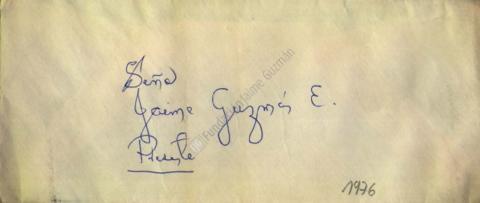 Señor
Jaime Guzmán E.
Presente
Fundación Jaime Guzmán
1976